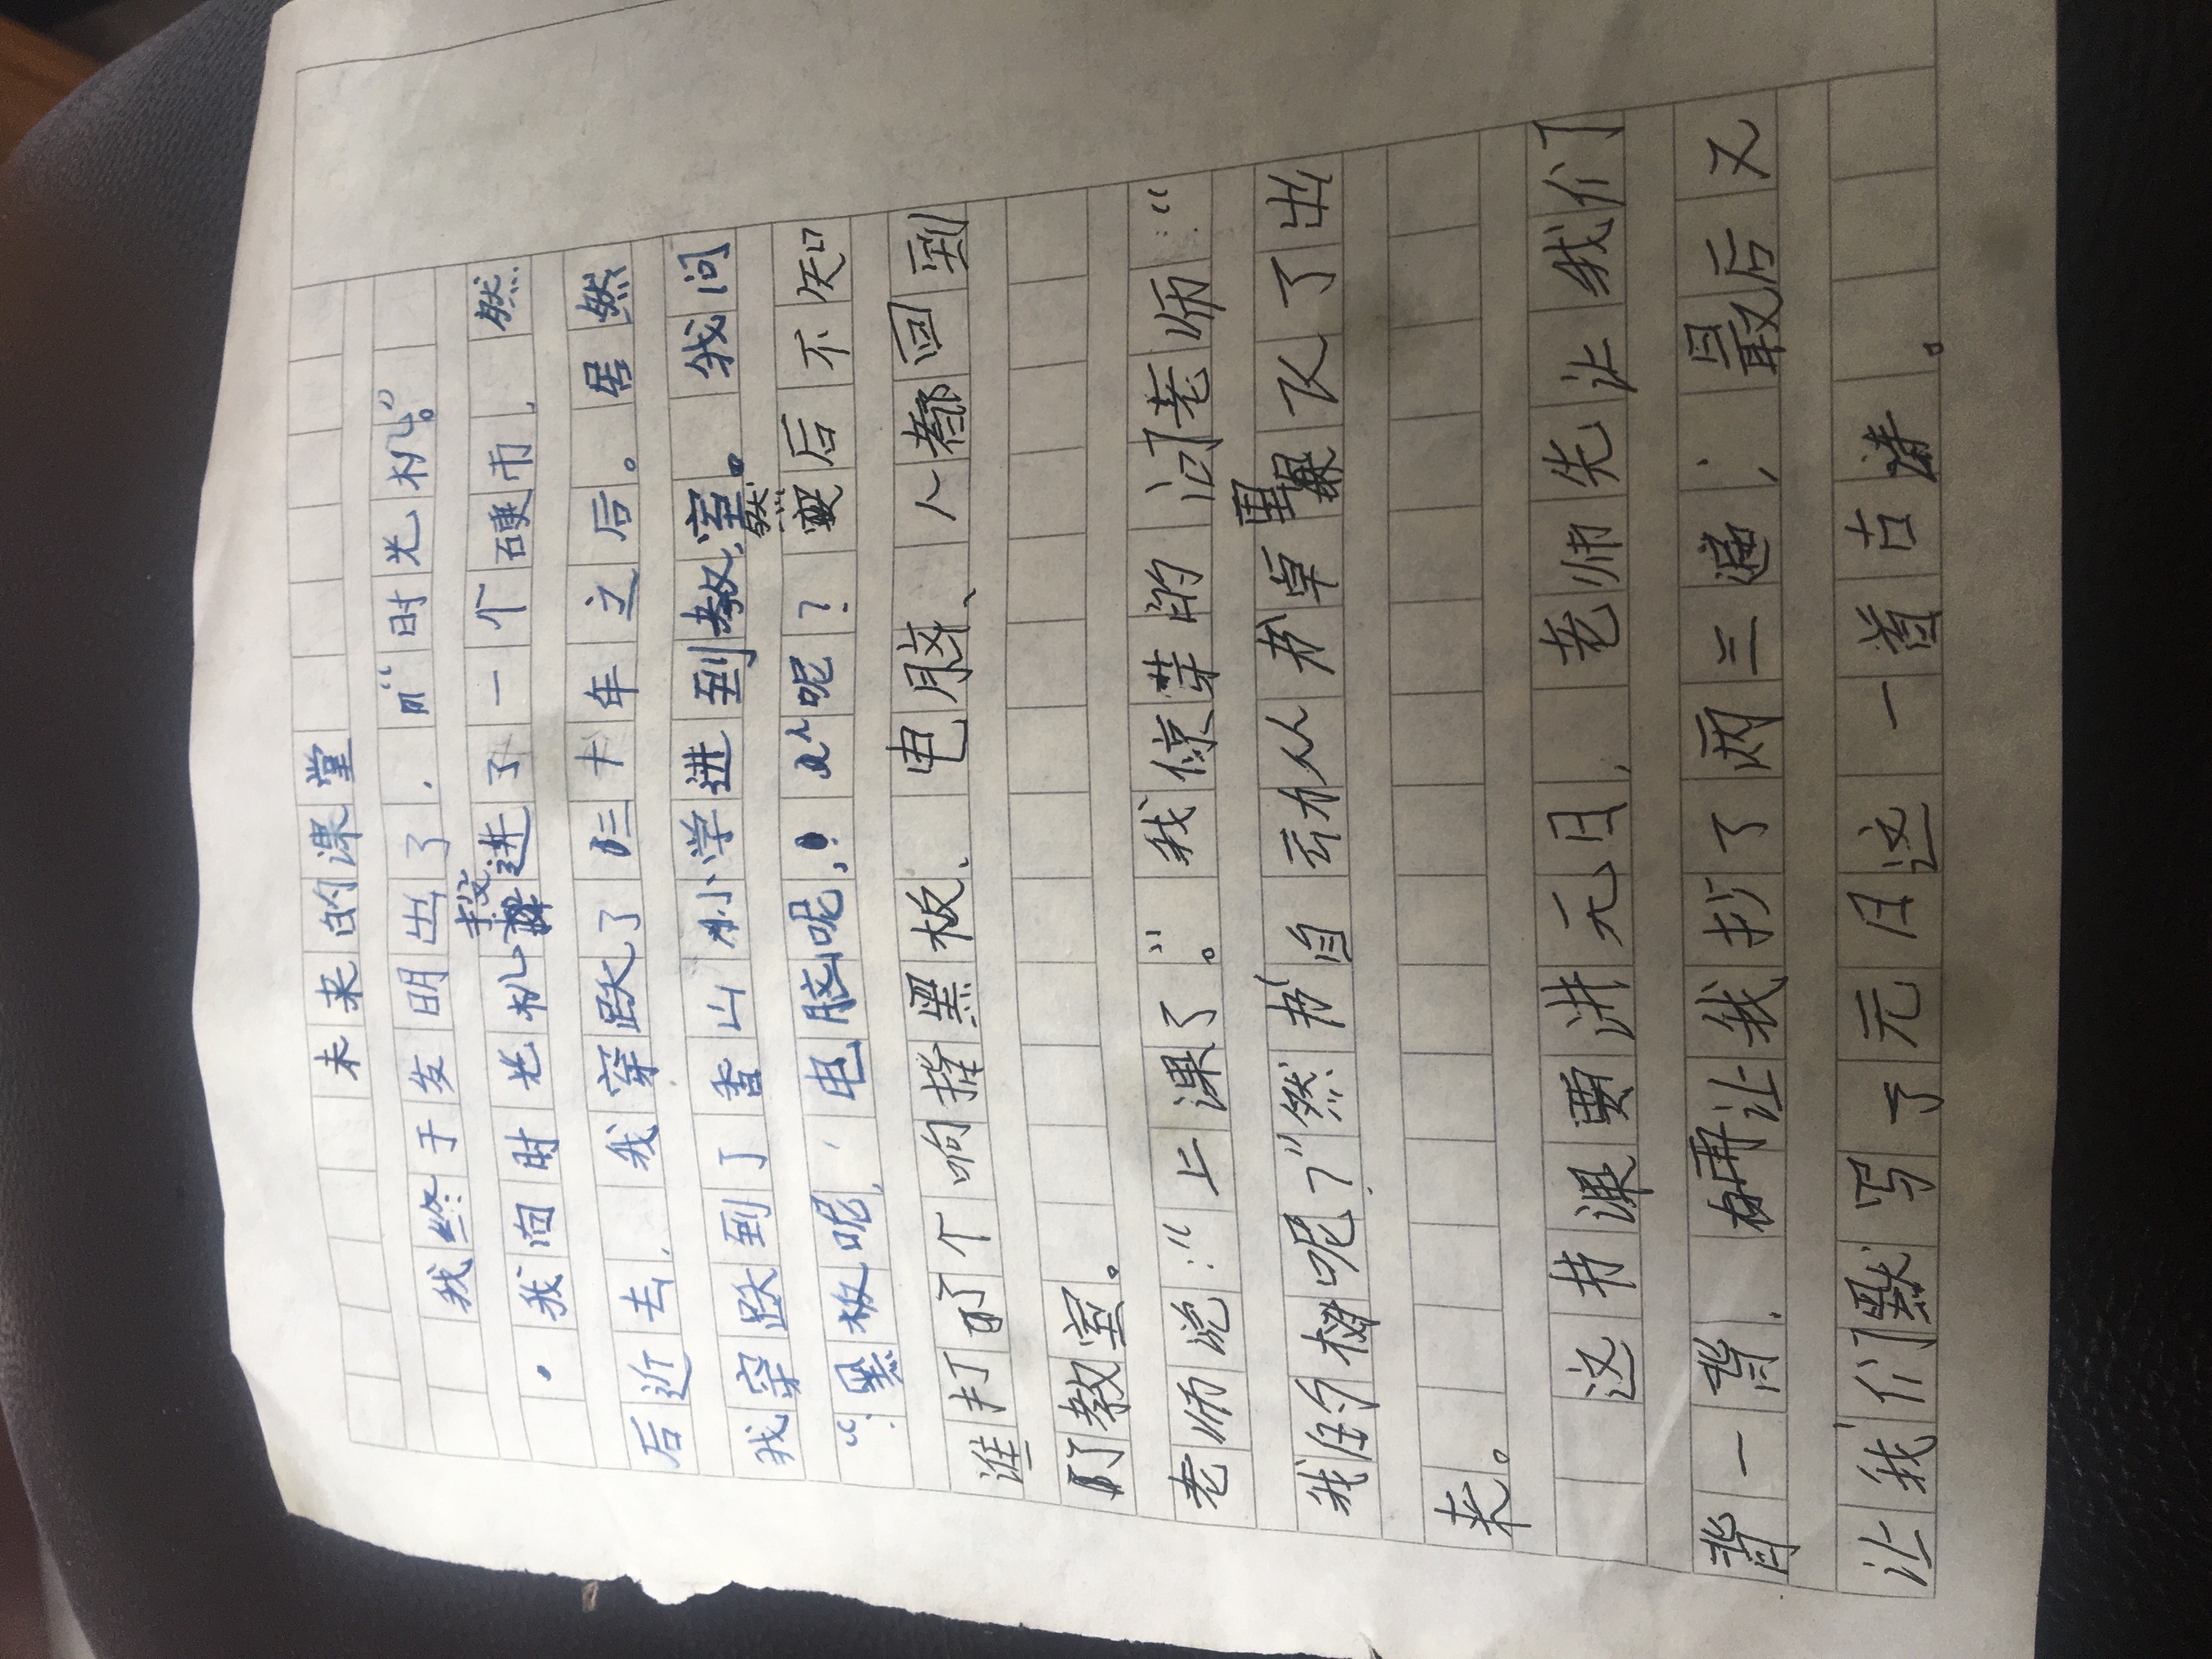 未来的课堂
我终于发明出了，“时光机。”
我向时光机投进了一个硬币，然
后近去，我穿跃了三十年之后。居然
我穿跃到了香山小学进到教室。我问
“黑板呢，电脑呢，人呢？然后不知
谁打了个响指黑板、电脑、人都回到
了教室。
老师说：“上课了。”我惊芽的问老师：“
我们的书呢？”然书自动从书桌里飞了出
来。
这节课要讲元日，老师先让我们
背一背，再让我抄了两三遍，最后又
让我们默写了元日这一首古诗。